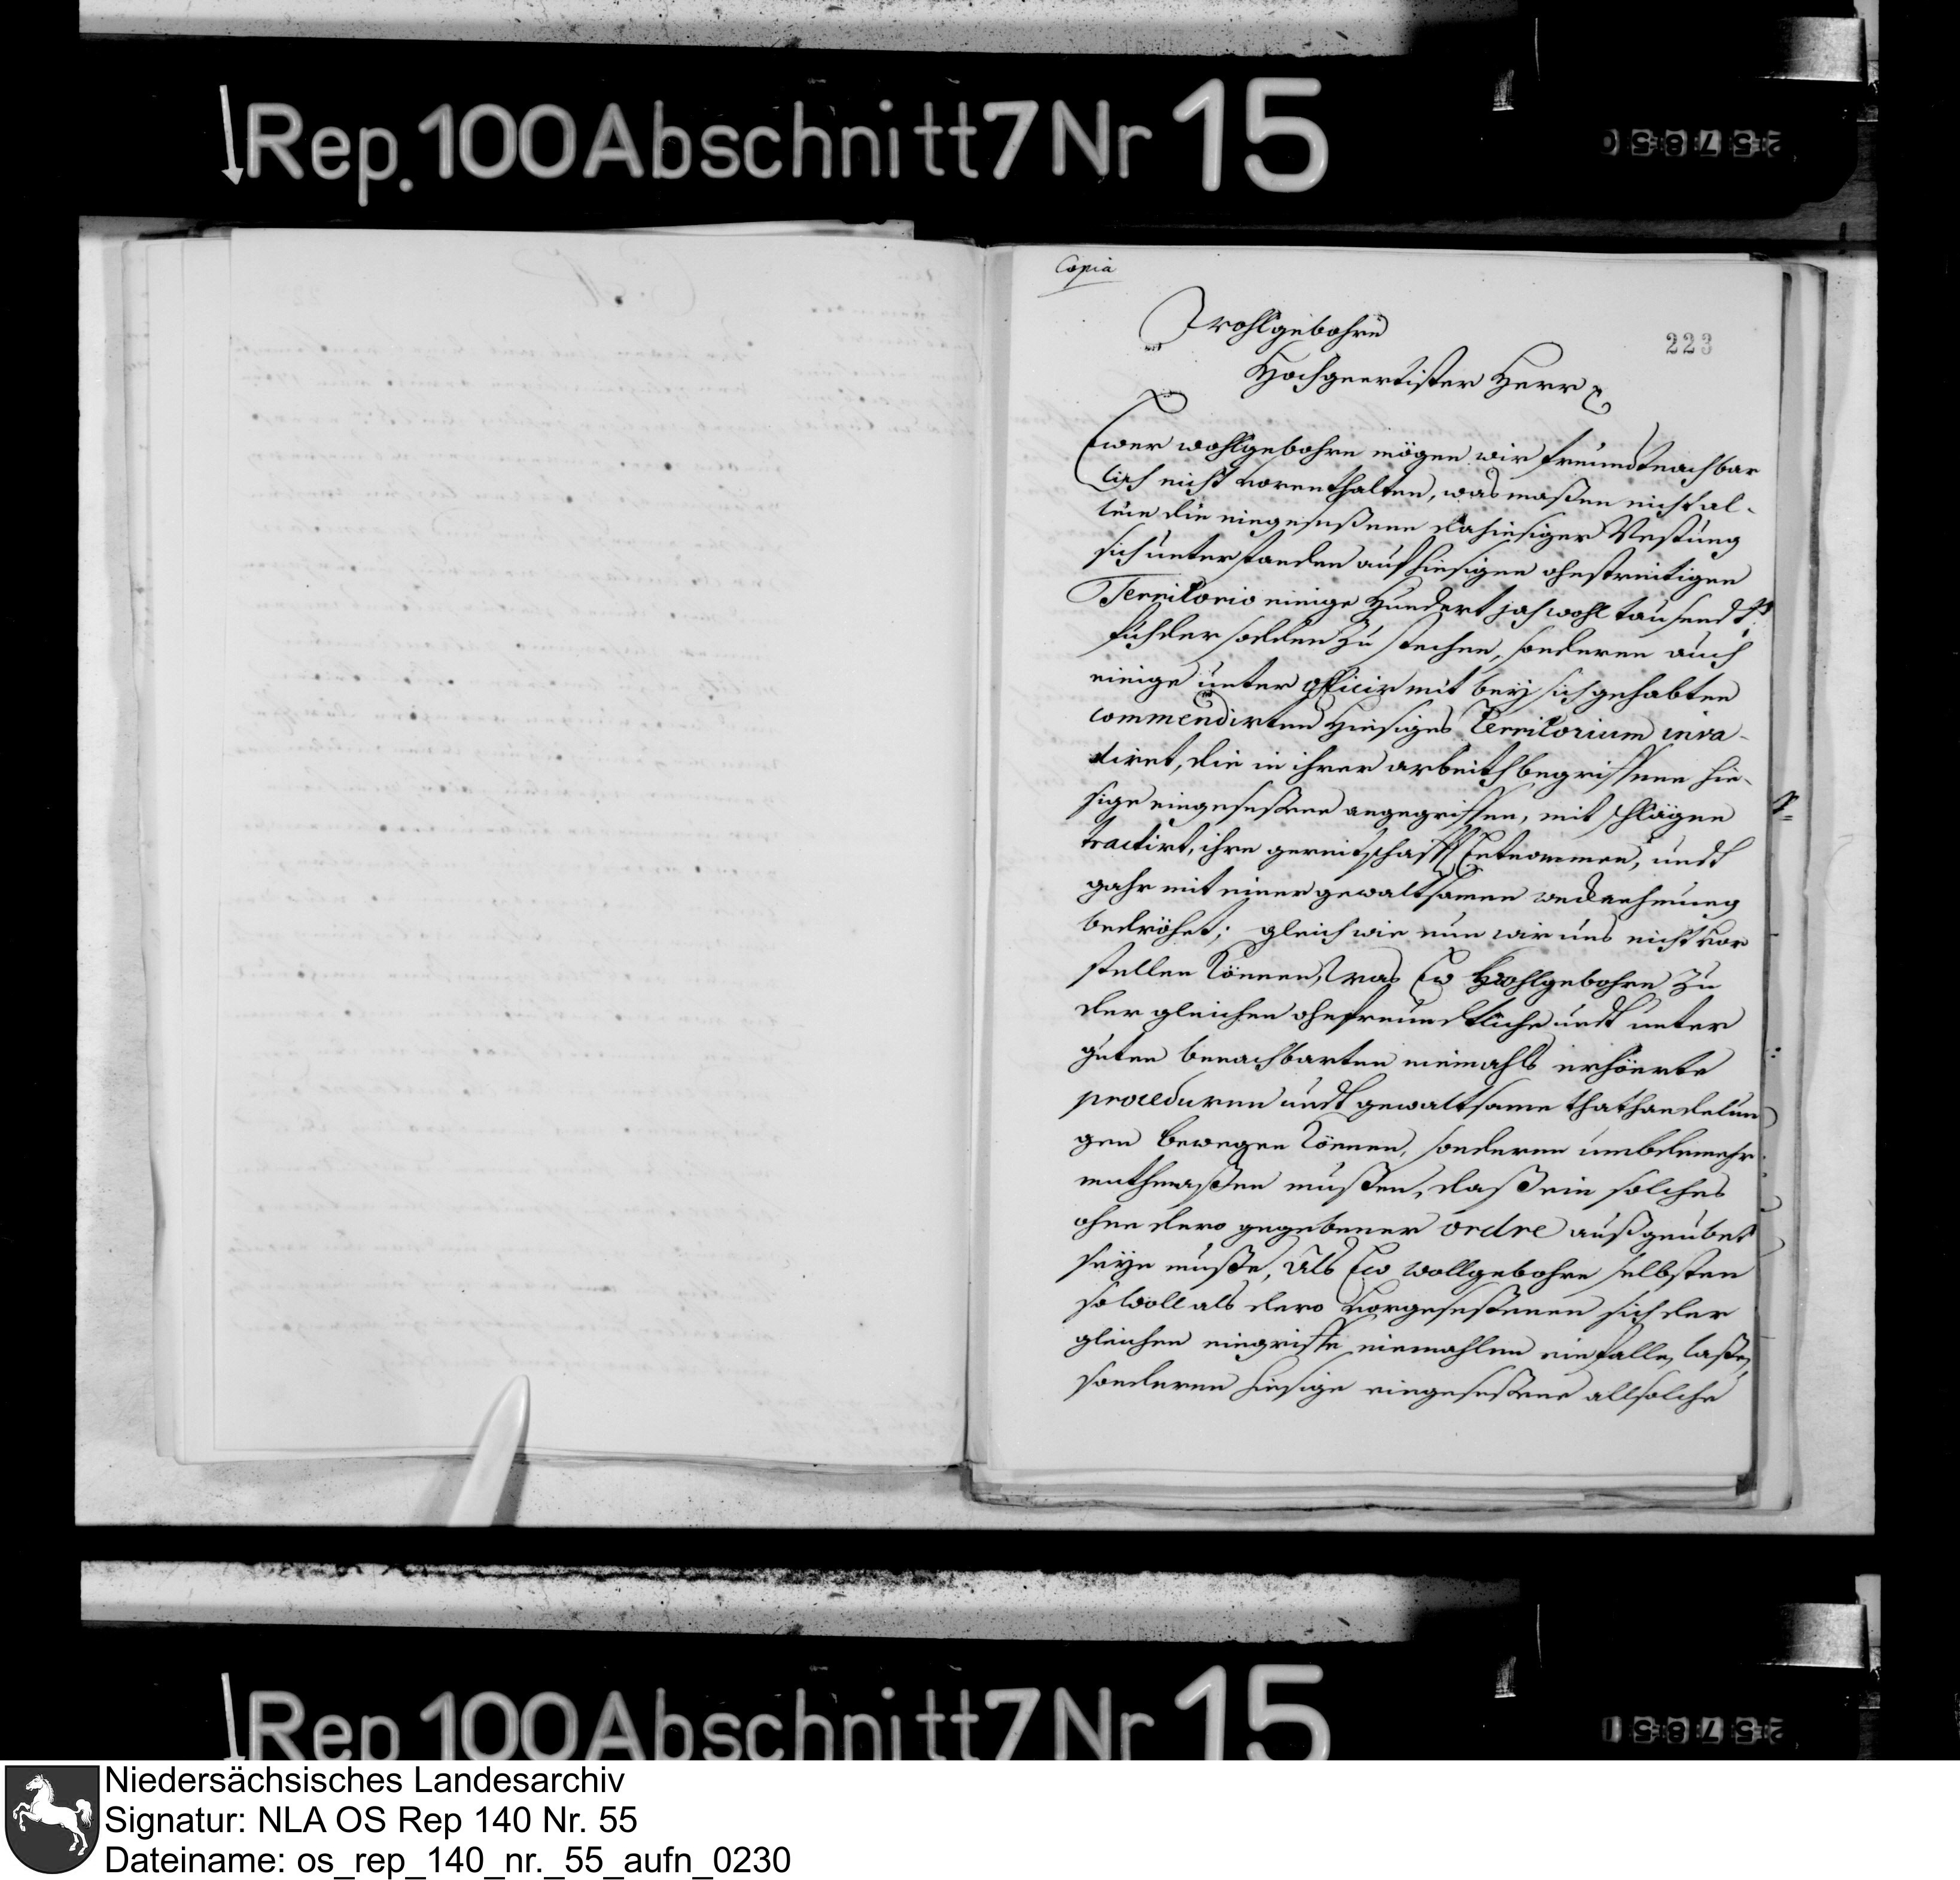 Rep. 100 Abschnitt 7 Nr 15
257850
Copia
223
Wohlgebohrn
Hochgeertister Herr
Ewer wohlgebohrn mögen wir freundtnachbar
lich nicht vorenthalten, was maßen nicht al-
leine die eingeseßene dahiesiger Vestung
sich unterstanden auf hiesigen ohnstreitigen
Territorio einige Hundert jah wohl tausendt
fuhder sodden zu stechen, sonderen auch
einige unter officir mit bey sich gehabten
commendirten hiesiges Territorium inva-
diret, die in ihrer arbeith begriffene hie-
sige eingeseßene angegriffen, mit schlägen
tractirt, ihre gereitschafft Entnommen, undt
gahr mit einer gewaltsamen
bedröhet; gleich wie nun wir uns nicht vor
stellen können, was Ew Wohlgebohrn zu
der gleichen ohnfreundtliche undt unter
guten benachbarten niemahls erhöerte
proceduren undt gewaltsame thathandelun
gen bewegen können, sonderen umbdemehr
muthmaßen mußen, daß ein solches
ohne dero gegebener ordre außgeubet
seyn muße, Als Ew wollgebohrn selbsten
so woll als dero Vorgeseßenen sich der
gleichen eingriffe niemahlen einfallen laßen,
sonderen hiesige eingeseßene allsolche
Rep 100 Abschnitt 7 Nr 15
257851
Niedersächsisches Landesarchiv
Signatur: NLA OS Rep 140 Nr. 55
Dateiname: os_rep_140_nr._55_aufn_0230